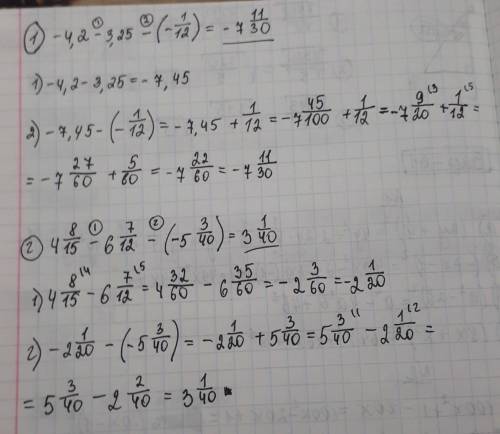 ① -4,2 - ① 3,25 - ② (-1/12) = -7 11/30
1) -4,2 - 3,25 = -7,45
2) -7,45 - (-1/12) = -7,45 + 1/12 = -7 45/100 + 1/12 = -7 9/20 \3 + 1/12 \5 =
= -7 27/60 + 5/60 = -7 22/60 = -7 11/30
② 4 8/15 - ① 6 7/12 - ② (-5 3/40) = 3 1/40
1) 4 8/15 \4 - 6 7/12 \5 = 4 32/60 - 6 35/60 = -2 3/60 = -2 1/20
2) -2 1/20 - (-5 3/40) = -2 1/20 + 5 3/40 = 5 3/40 \1 - 2 1/20 \2 =
= 5 3/40 - 2 2/40 = 3 1/40.